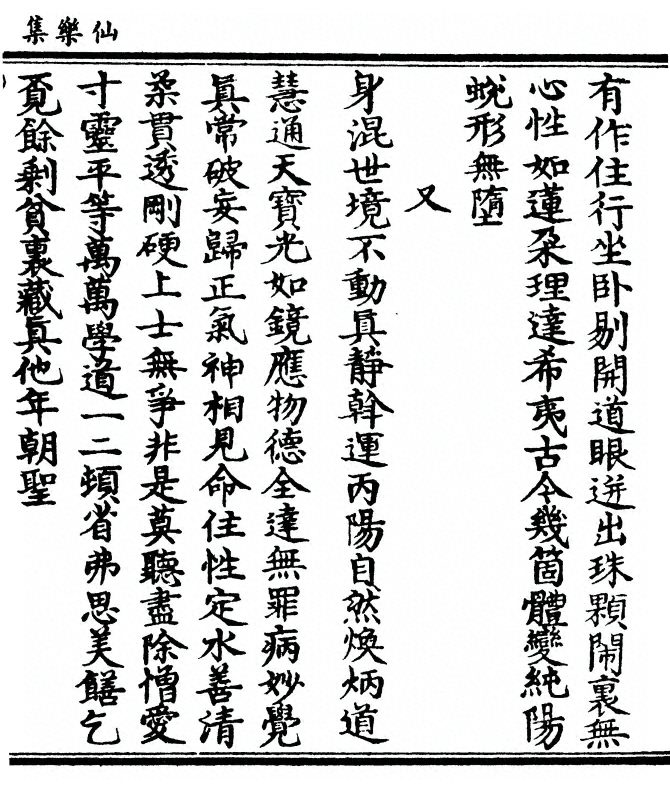 仙樂集
有作住行坐臥剔開道眼迸出珠顆鬧裏無
心性如蓮朶理達希夷古今幾箇體變純陽
蛻形無墮
又
身混世境不動眞靜斡運丙陽自然煥炳道
慧通天寶光如鏡應物德全達無罪病妙覺
眞常破妄歸正氣神相見命住性定水善清
柔貫透剛硬上士無爭非是莫聽盡除憎愛
寸靈平等萬萬學道一二頓省弗思美饍乞
覓餘剩貧裏藏眞他年朝聖